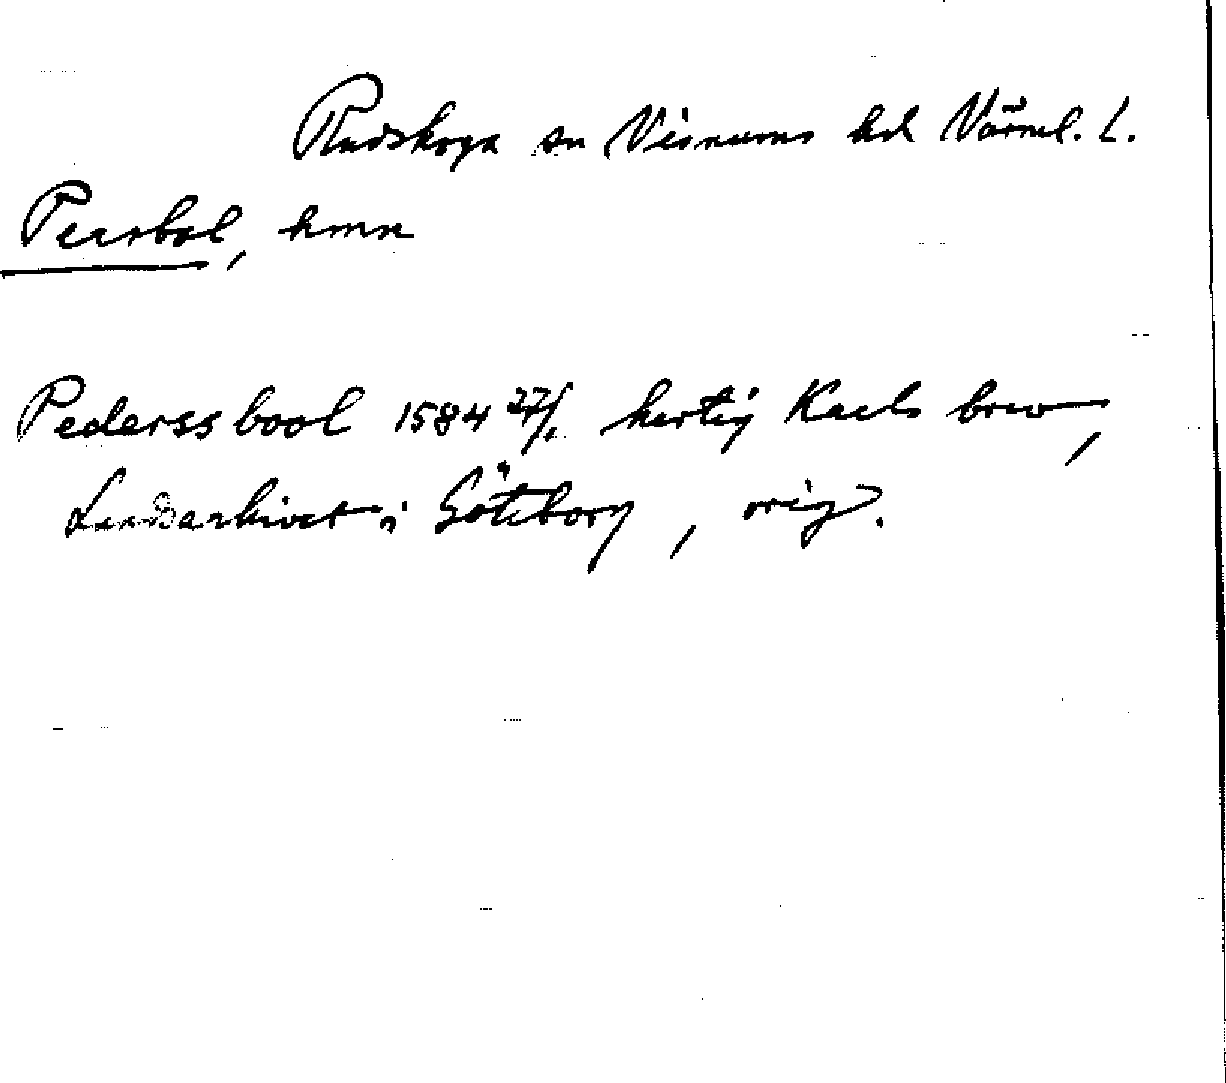 Rudskoga sn Visnums hd Värml. l.
Persbol, hmn
Pederssbool 1584 27/1. hertig Karls brev,
Landsarkivet i Göteborg, orig.